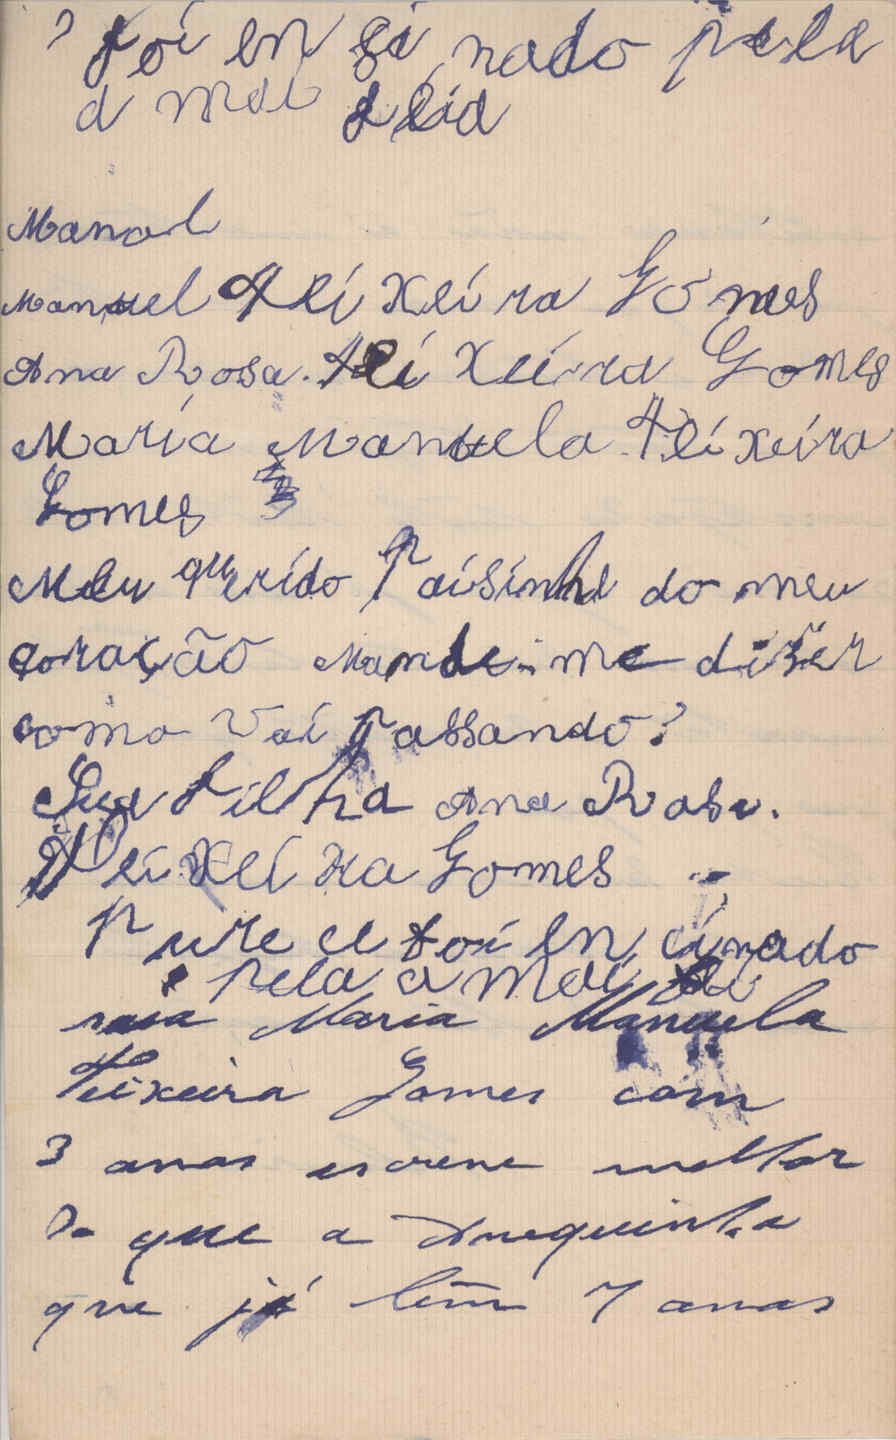 ? foi en si nado pela
a mai
Manol
Manuel teixeira Gomes
Ana Rosa. teixeira Gomes
Maria Manuela teixeira
Gomes
Meu querido Paisinho do meu
coração Mande-me diser
como vai passando?
Sua filha Ana Rosa.
teixeira Gomes
foi en cinado
pela a mai
Maria Manuela
Teixeira Gomes com
3 anos escreve melhor
do que a Anequinha
que já tem 7 anos